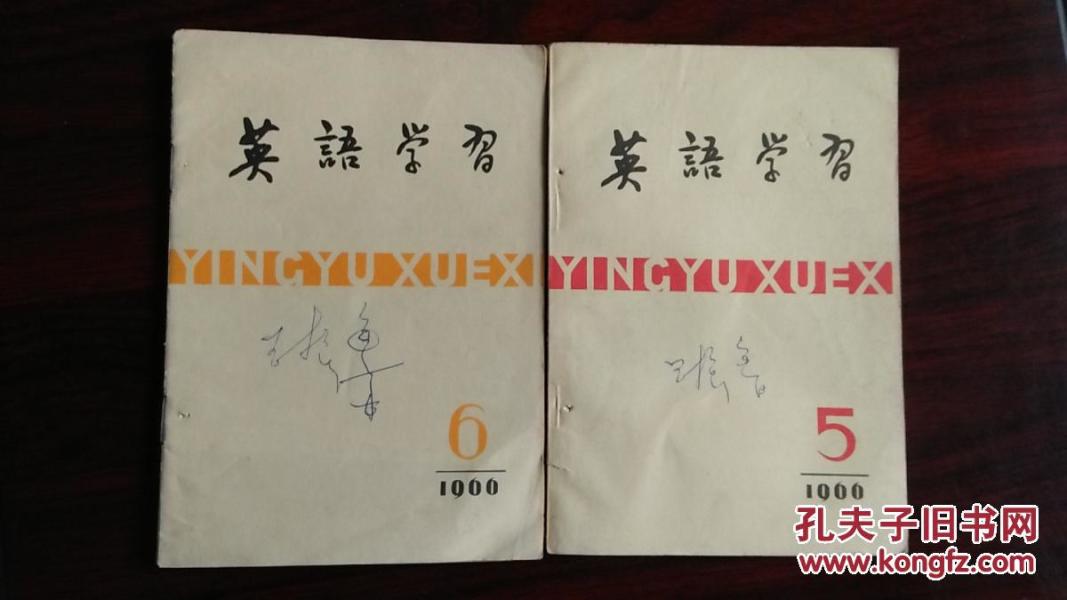 英語学習
YINGYU XUEX
6
1966
英語学習
YINGYU XUEX
5
1966
孔夫子旧书网
www.kongfz.com